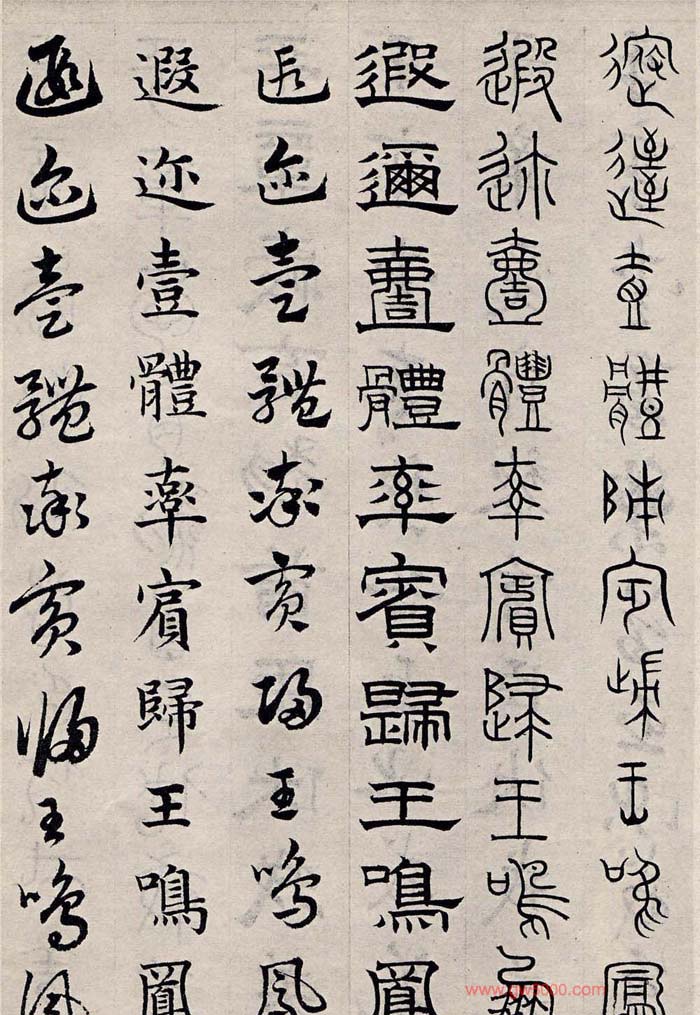 遐邇壹體率賓歸王鳴鳳
遐迩壹體率賓歸王鳴鳳
遐邇壹體率賓歸王鳴鳳
遐迩壹體率賓歸王鳴鳳
遐迩壹體率賓歸王鳴鳳
遐迩壹體率賓歸王鳴鳳